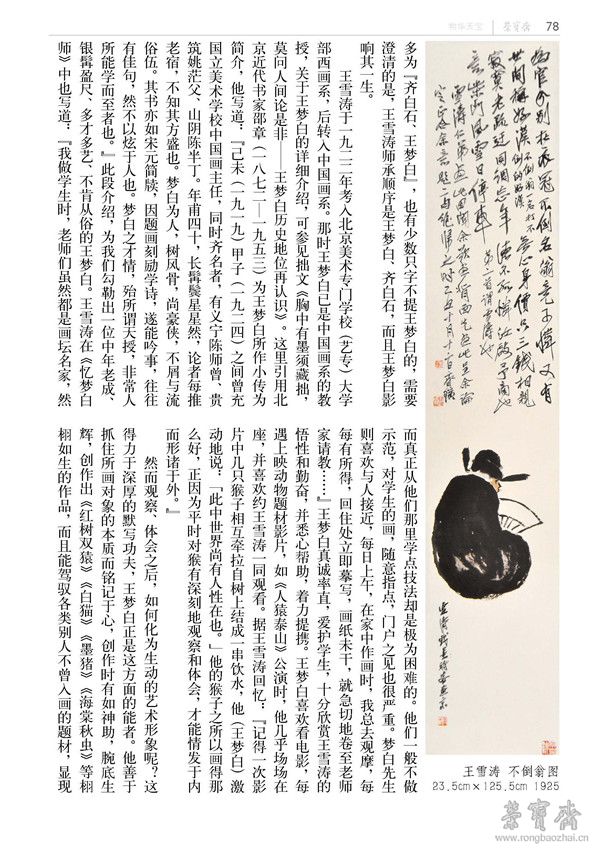 物华天宝
荣宝斋
78
多为『齐白石、王梦白』，也有少数只字不提王梦白的，需要
澄清的是，王雪涛师承顺序是王梦白、齐白石，而且王梦白影
响其一生。
王雪涛于一九二二年考入北京美术专门学校（艺专）大学
部西画系，后转入中国画系。那时王梦白已是中国画系的教
授，关于王梦白的详细介绍，可参见拙文《胸中有墨须藏拙，
莫问人间论是非——王梦白历史地位再认识》。这里引用北
京近代书家邵章（一八七二—一九五三）为王梦白所作小传为
简介，他写道：『己未（一九一九）甲子（一九二四）之间曾充
国立美术学校中国画主任，同时齐名者，有义宁陈师曾、贵
筑姚茫父、山阴陈半丁。年甫四十，长髯鬓星星然，论者每推
老宿，不知其方盛也。梦白为人，树风骨，尚豪侠，不屑与流
俗伍。其书亦如宋元简牍，因题画刻励学诗，遂能吟事，往往
有佳句，然不以炫于人也。梦白之才情，殆所谓天授，非常人
所能学而至者也。』此段介绍，为我们勾勒出一位中年老成、
银髯盈尺、多才多艺、不肯从俗的王梦白。王雪涛在《忆梦白
师》中也写道：『我做学生时，老师们虽然都是画坛名家，然
而真正从他们那里学点技法却是极为困难的。他们一般不做
示范，对学生的画，随意指点，门户之见也很严重。梦白先生
则喜欢与人接近，每日上午，在家中作画时，我总去观摩，每
每有所得，回住处立即摹写，画纸未干，就急切地卷至老师
家请教……』王梦白真诚率直，爱护学生，十分欣赏王雪涛的
悟性和勤奋，并悉心帮助，着力提携。王梦白喜欢看电影，每
遇上映动物题材影片，如《人猿泰山》公演时，他几乎场场在
座，并喜欢约王雪涛一同观看。据王雪涛回忆：『记得一次影
片中几只猴子相互牵拉自树上结成一串饮水，他（王梦白）激
动地说：「此中世界尚有人性在也。」他的猴子之所以画得那
么好，正因为平时对猴有深刻地观察和体会，才能情发于内
而形诸于外。』
然而观察、体会之后，如何化为生动的艺术形象呢？这
得力于深厚的默写功夫，王梦白正是这方面的能者。他善于
抓住所画对象的本质而铭记于心，创作时有如神助，腕底生
辉，创作出《红树双猿》《白猫》《墨猪》《海棠秋虫》等栩
栩如生的作品，而且能驾驭各类别人不曾入画的题材，显现
王雪涛 不倒翁图
23.5cm×125.5cm 1925
荣宝斋
www.rongbaozhai.cn